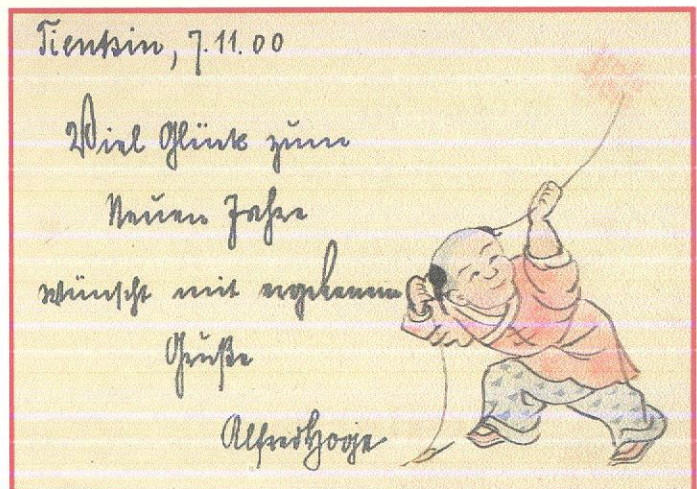 Tientsin, 7.11.00
Viel Glück zum
Neuen Jahre
wünscht mit ergebenem
Gruße
Alfred Hoge